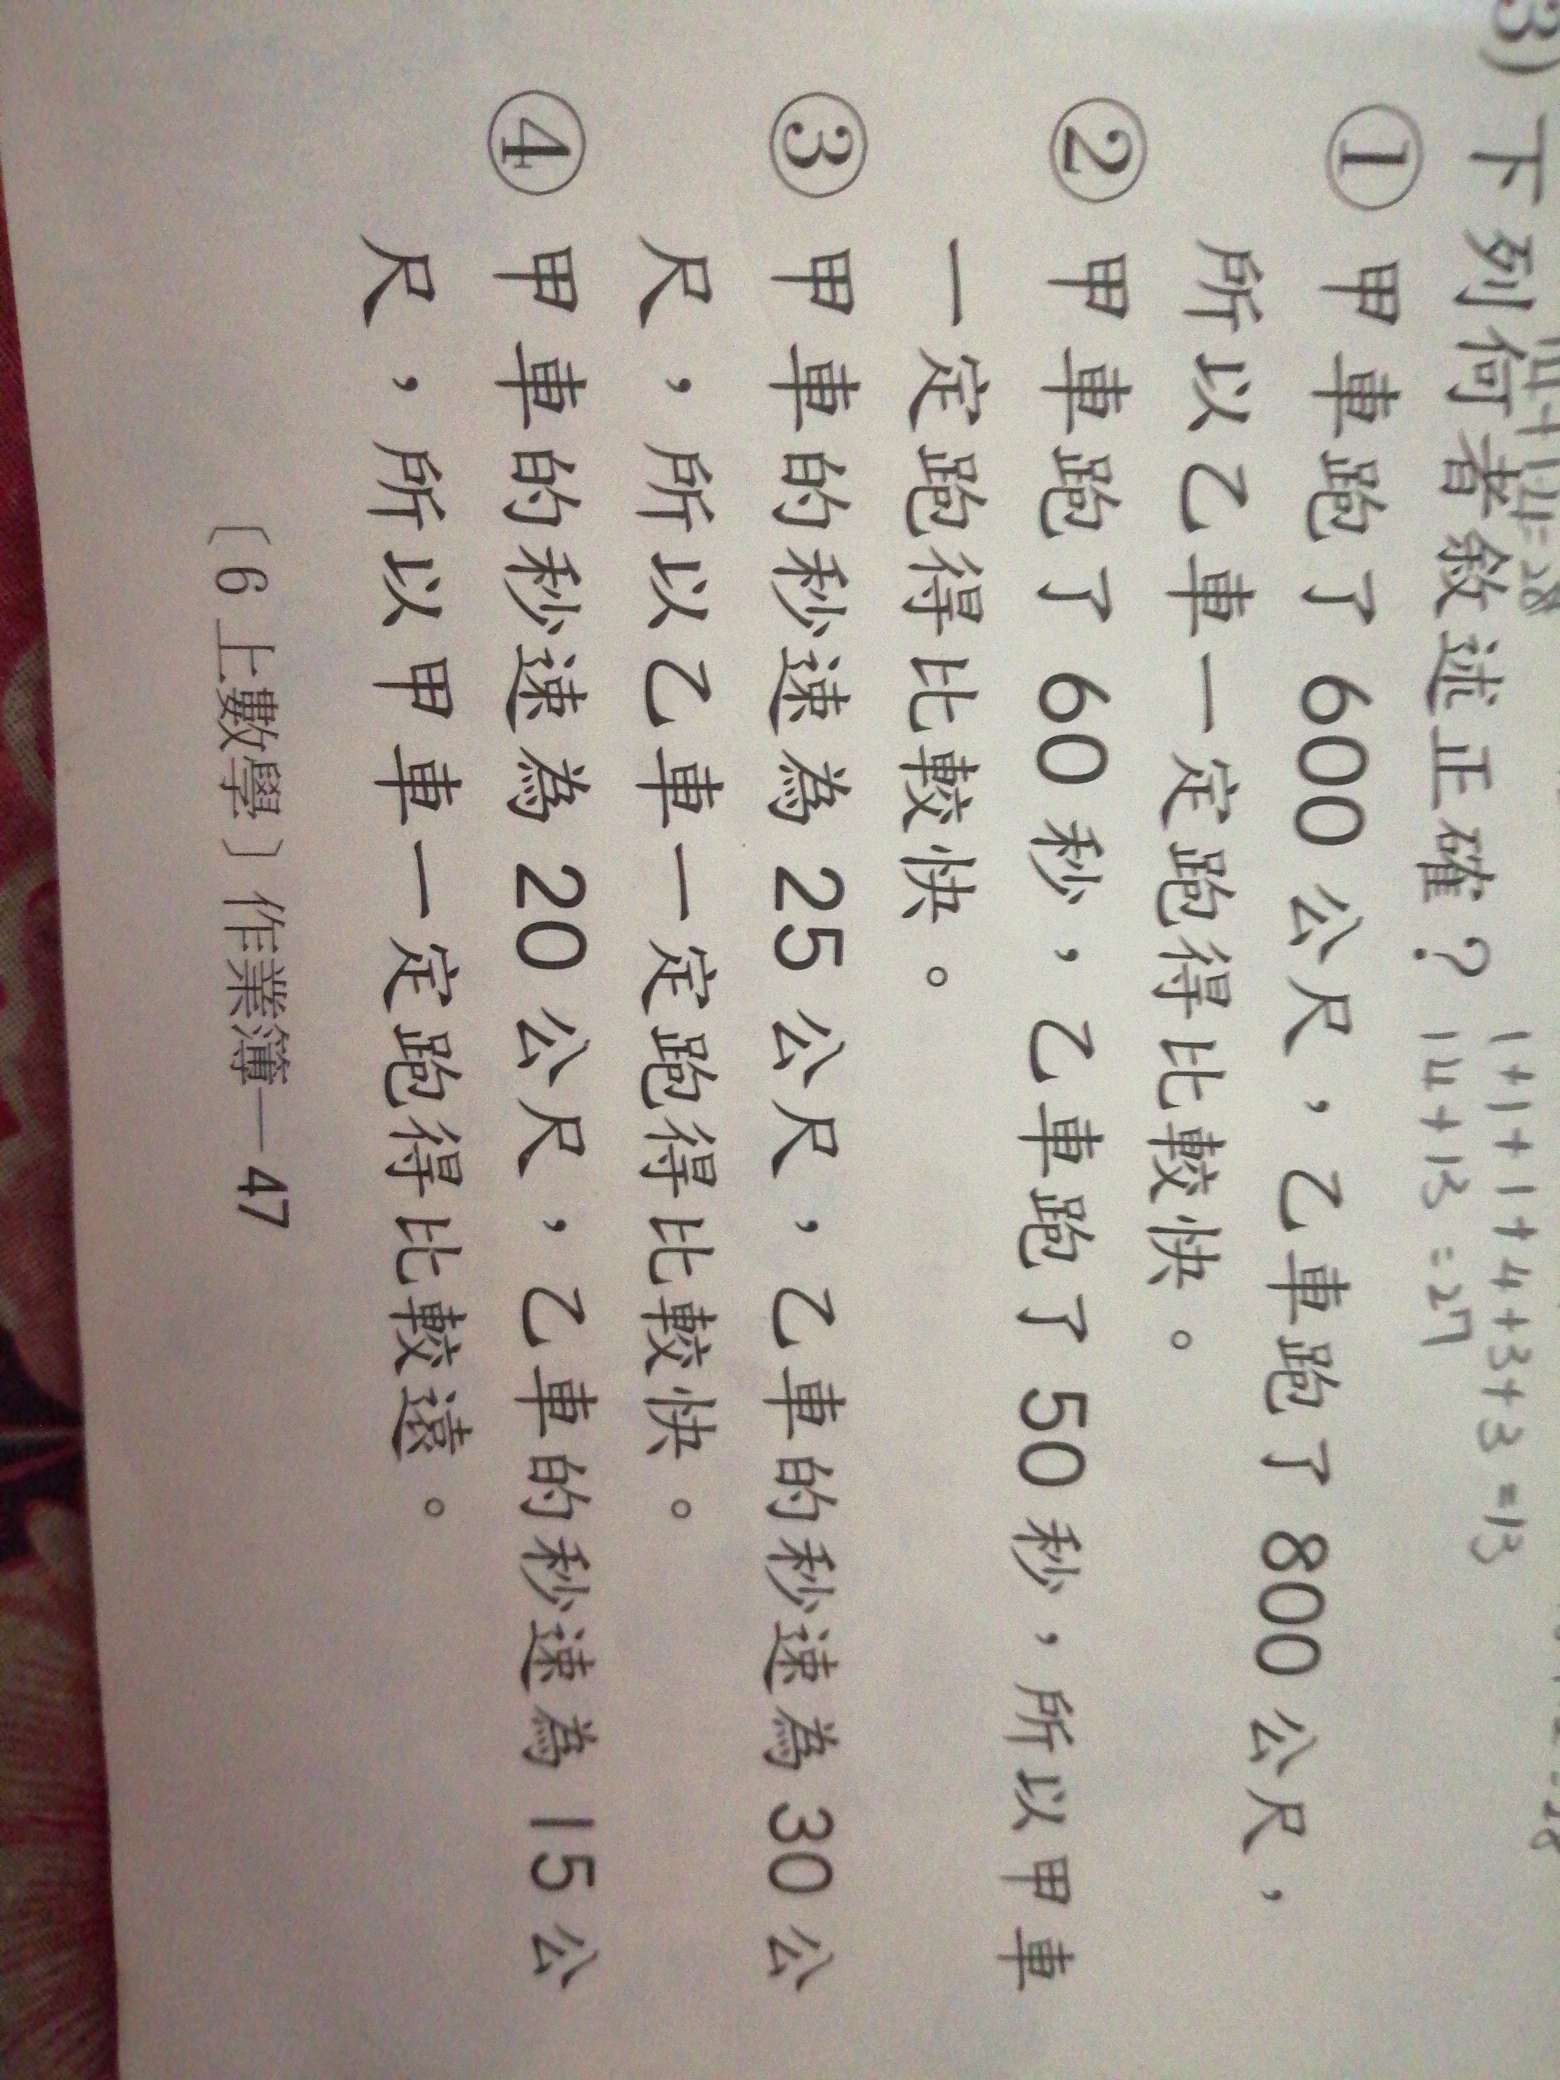 3) 下列何者敘述正確？
14+14=28
1+1+1+4+3+3=13
14+13=27
① 甲車跑了 600 公尺，乙車跑了 800 公尺，
所以乙車一定跑得比較快。
② 甲車跑了 60 秒，乙車跑了 50 秒，所以甲車
一定跑得比較快。
③ 甲車的秒速為 25 公尺，乙車的秒速為 30 公
尺，所以乙車一定跑得比較快。
④ 甲車的秒速為 20 公尺，乙車的秒速為 15 公
尺，所以甲車一定跑得比較遠。
〔6 上數學〕作業簿—47